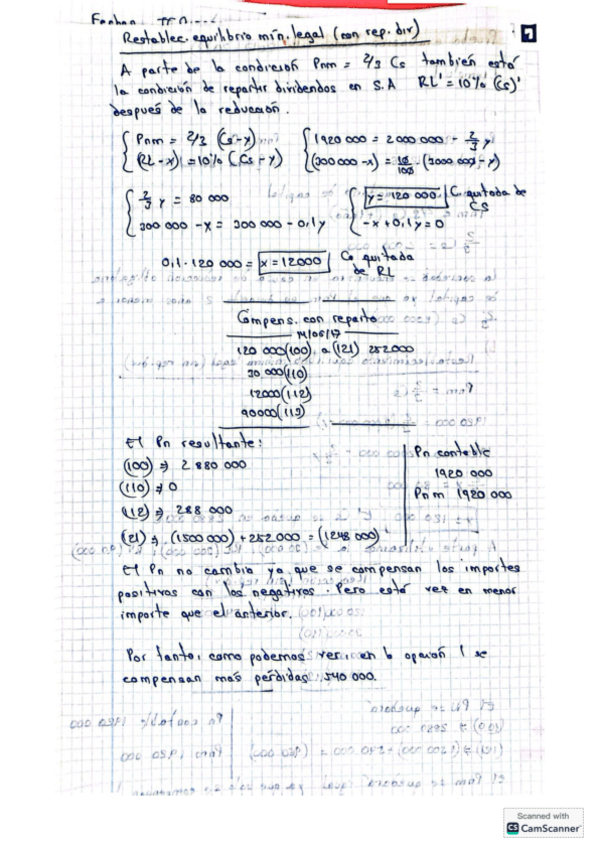 7
Restablec. equilibrio mín. legal (con rep. div)
A parte de la condición Pnm = 2/3 Cs también está
la condición de repartir dividendos en S.A RL' = 10% (Cs)'
después de la reducción.
Pnm = 2/3 (Cs-y)
(RL-x) = 10% (Cs-y)
1920 000 = 2000 000 - 2/3 y
(300 000 -x) = 10/100 · (3000 000 -y)
2/3 y = 80 000
300 000 -x = 300 000 - 0,1y
y = 120 000. Cº quitada de CS
-x + 0,1y = 0
0,1 · 120 000 = x = 12000 Cº quitada de RL
Compens. con reparto
14/06/17
120 000 (100) a (121) 252000
30.000 (110)
12000 (112)
90000 (113)
El Pn resultante:
(100) ⇒ 2 880 000
(110) ⇒ 0
(112) ⇒ 288 000
(121) ⇒ (1500 000) + 252 000 = (1248 000)
Pn contable
1920 000
Pnm 1920 000
El Pn no cambia ya que se compensan los importes
positivos con los negativos. Pero está vez en menor
importe que el anterior.
Por tanto, como podemos ver, en b opción 1 se
compensan más pérdidas, 540 000.
Scanned with
CS CamScanner